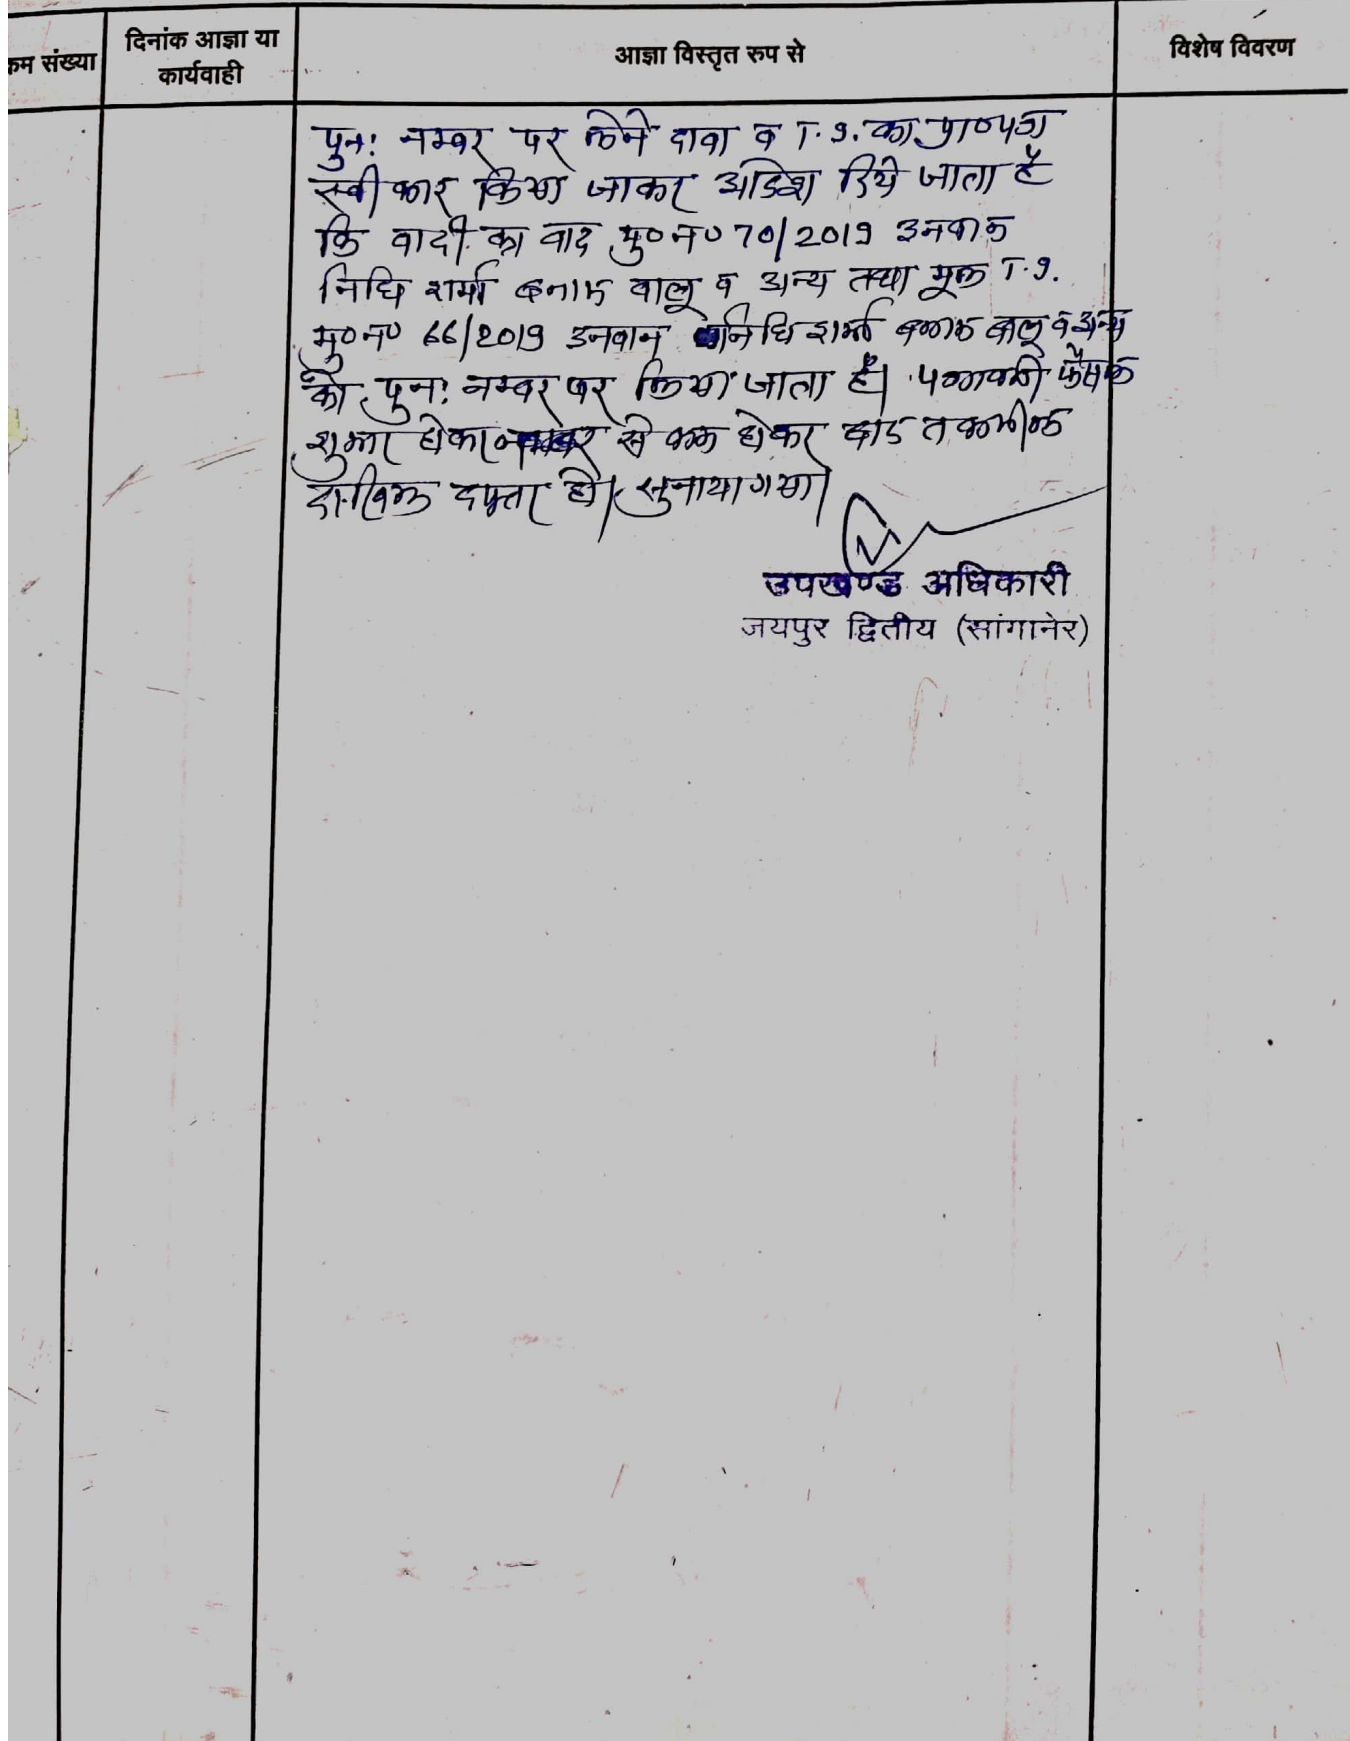 क्रम संख्या
दिनांक आज्ञा या
कार्यवाही
आज्ञा विस्तृत रुप से
विशेष विवरण
पुनः नम्बर पर लेने दावा व T.I. का प्रा०पत्र
स्वीकार किया जाकर आदेश दिये जाता है
कि वादी का वाद मु०न० 70/2019 उनवान
निधि शर्मा बनाम बालू व अन्य तथा मूल T.I.
मु०न० 66/2019 उनवान निधि शर्मा बनाम बालू व अन्य
को पुनः नम्बर पर लिया जाता है। पत्रावली फैसल
शुमार होकर नम्बर से कम होकर बाद तकमील
दाखिल दफ्तर हो। सुनाया गया।
उपखण्ड अधिकारी
जयपुर द्वितीय (सांगानेर)